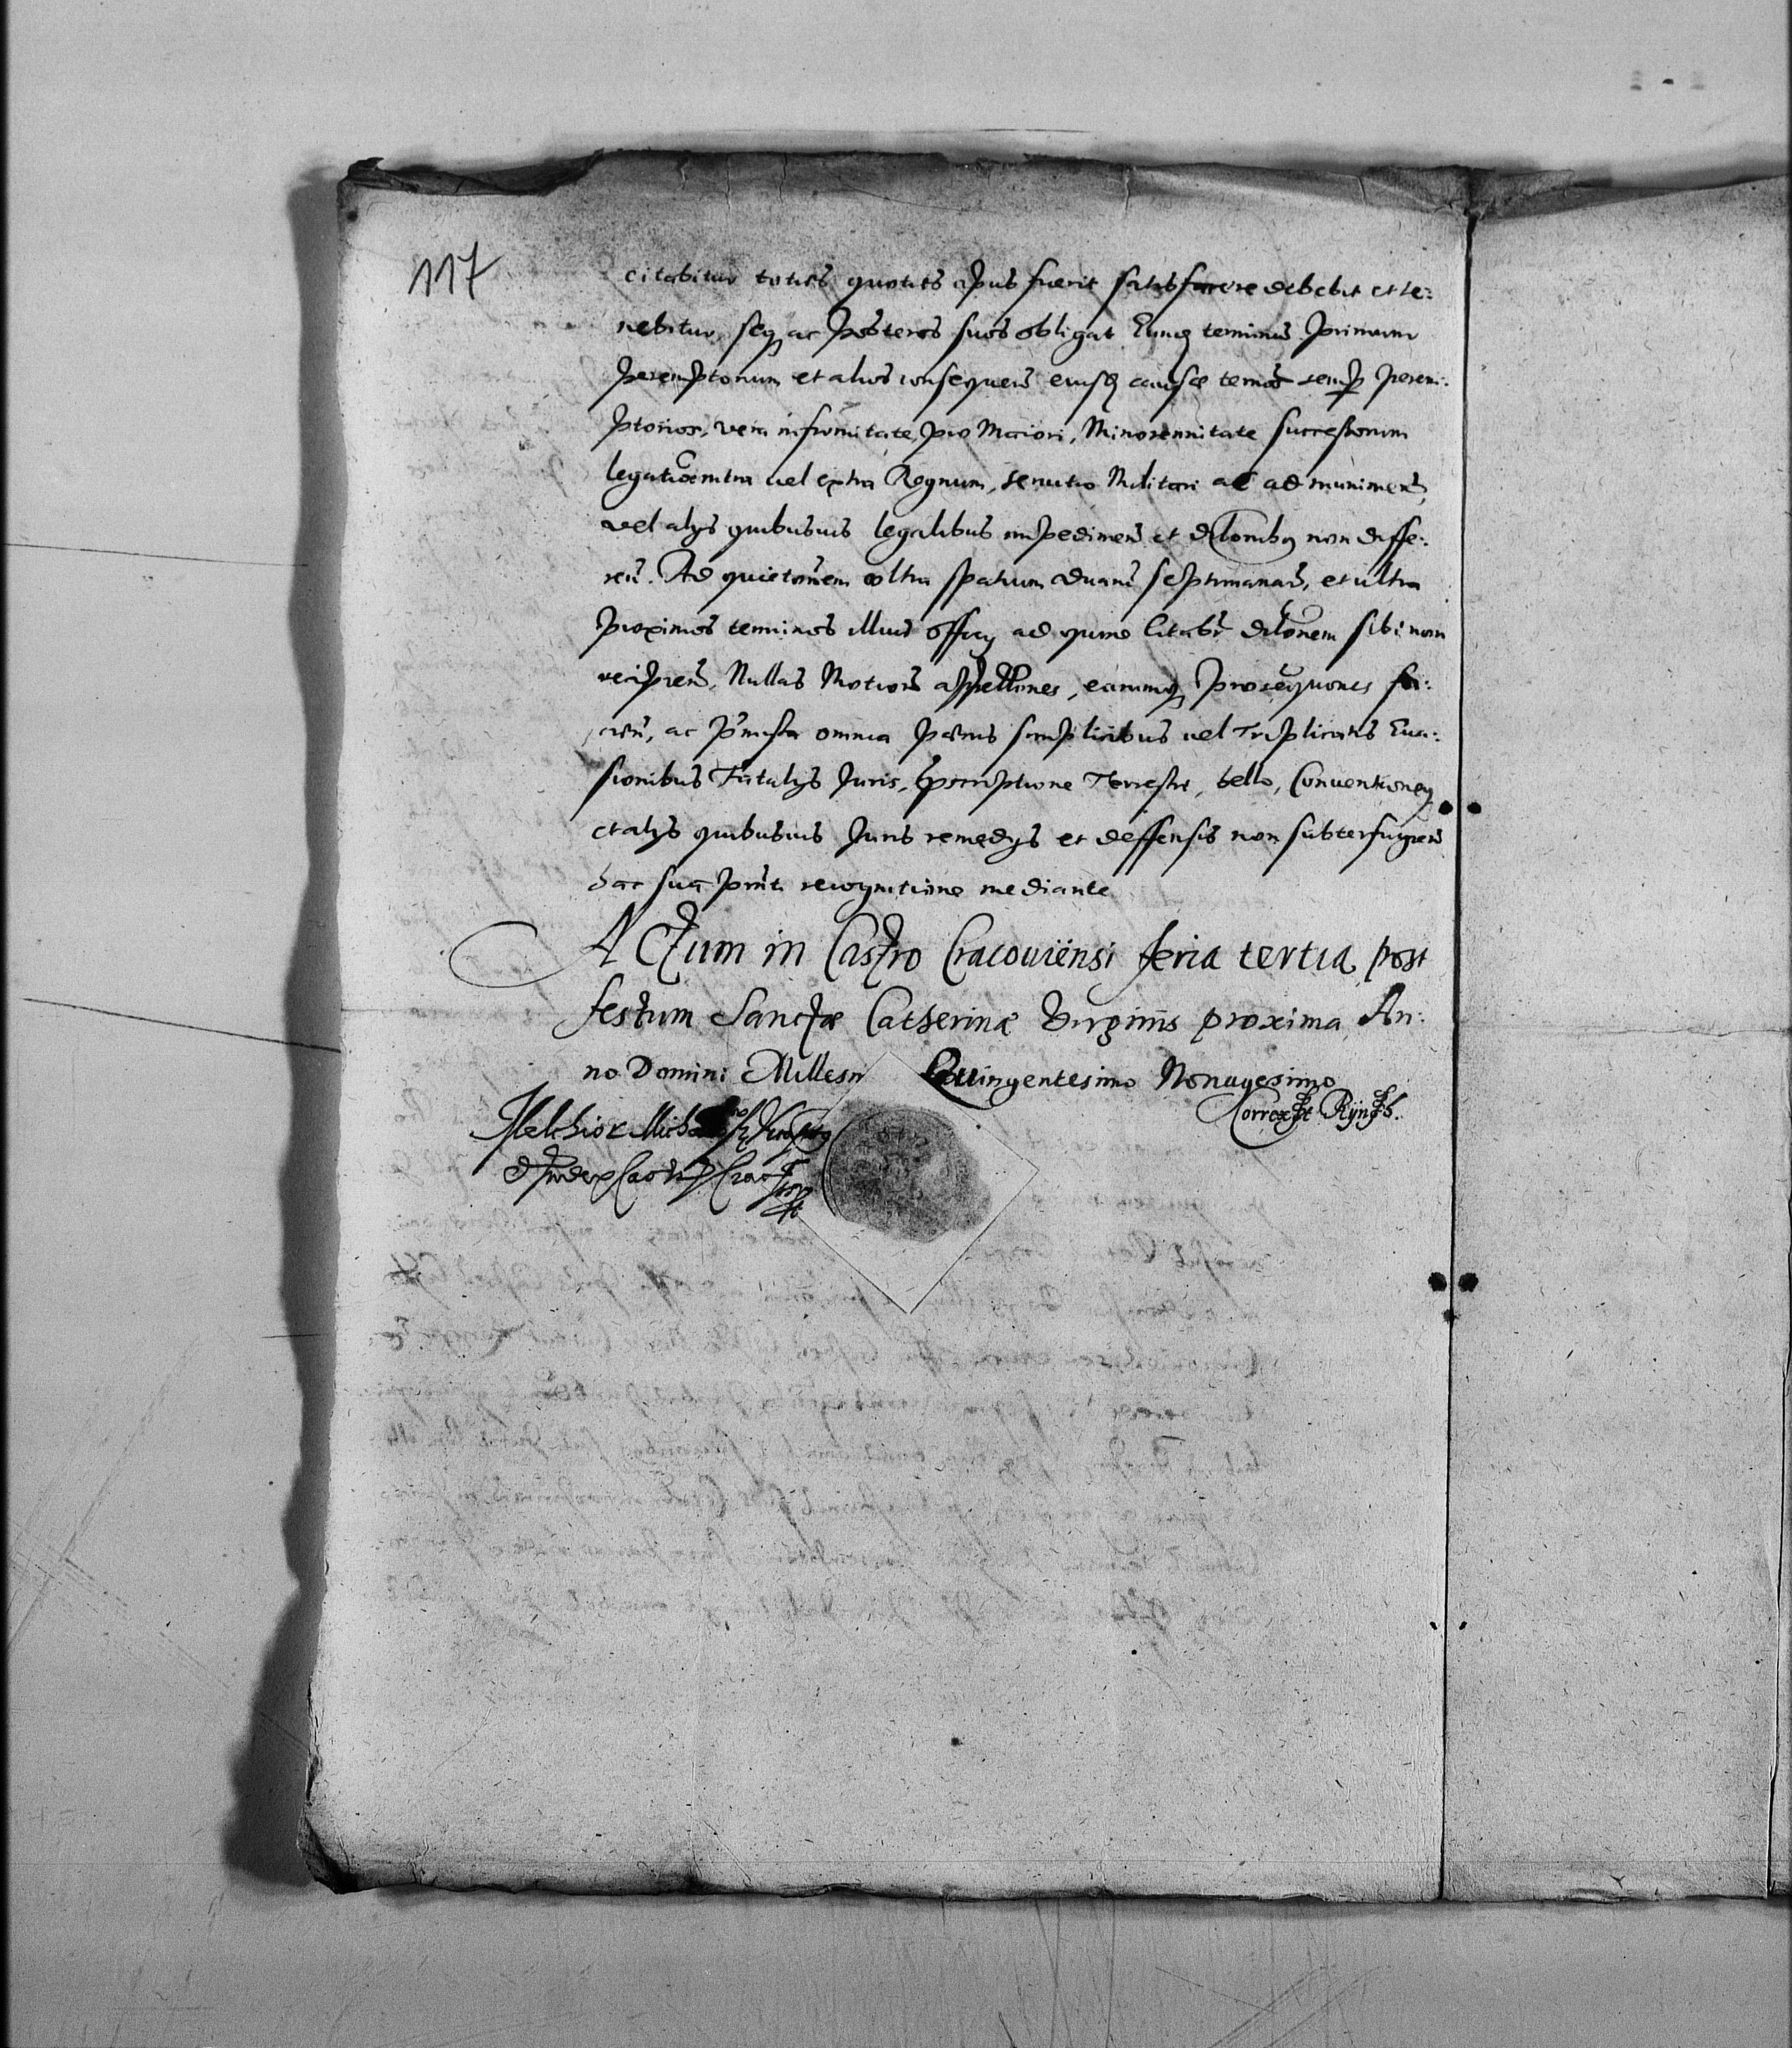 117
citabitur toties quoties opus fuerit satisfacere debebit et te:
nebitur, seq ac posteros suos obligat Eunq terminus primum
peremptorium et alios consequens eiusq causæ termos semp perem:
ptorios, vera infirmitate, pro Maiori, Minorennitate successorum
legatioe intra vel extra Regnum, servitio Militari ac ad munimen,
vel alys quibusvis legalibus impedimen et dilonibq non diffe:
ren. Ad quietonem ultra spatium duaru septimanaru, et ultra
proximos terminos illius officy ad quine Citabr dilonem sibi non
recipien, Nullas Motiones appellones, earumq prosequones fa:
cien, ac pmissa omnia pænis simplicibus vel Triplicatis Eua:
sionibus Fatalys Juris, pscriptione Terrestri, bello, Conventioneq
et alys quibusvis Juris remedys et deffensis non subterfugien
hac sua pnti recognitione mediante
ACtum in Castro Cracouiensi feria tertia post
festum Sanctæ Catherinæ Virginis proxima An:
no Domini Millesi Quingentesimo Nonagesimo
Correxit Ryn
Melchior Mich
Judex Castr Crac